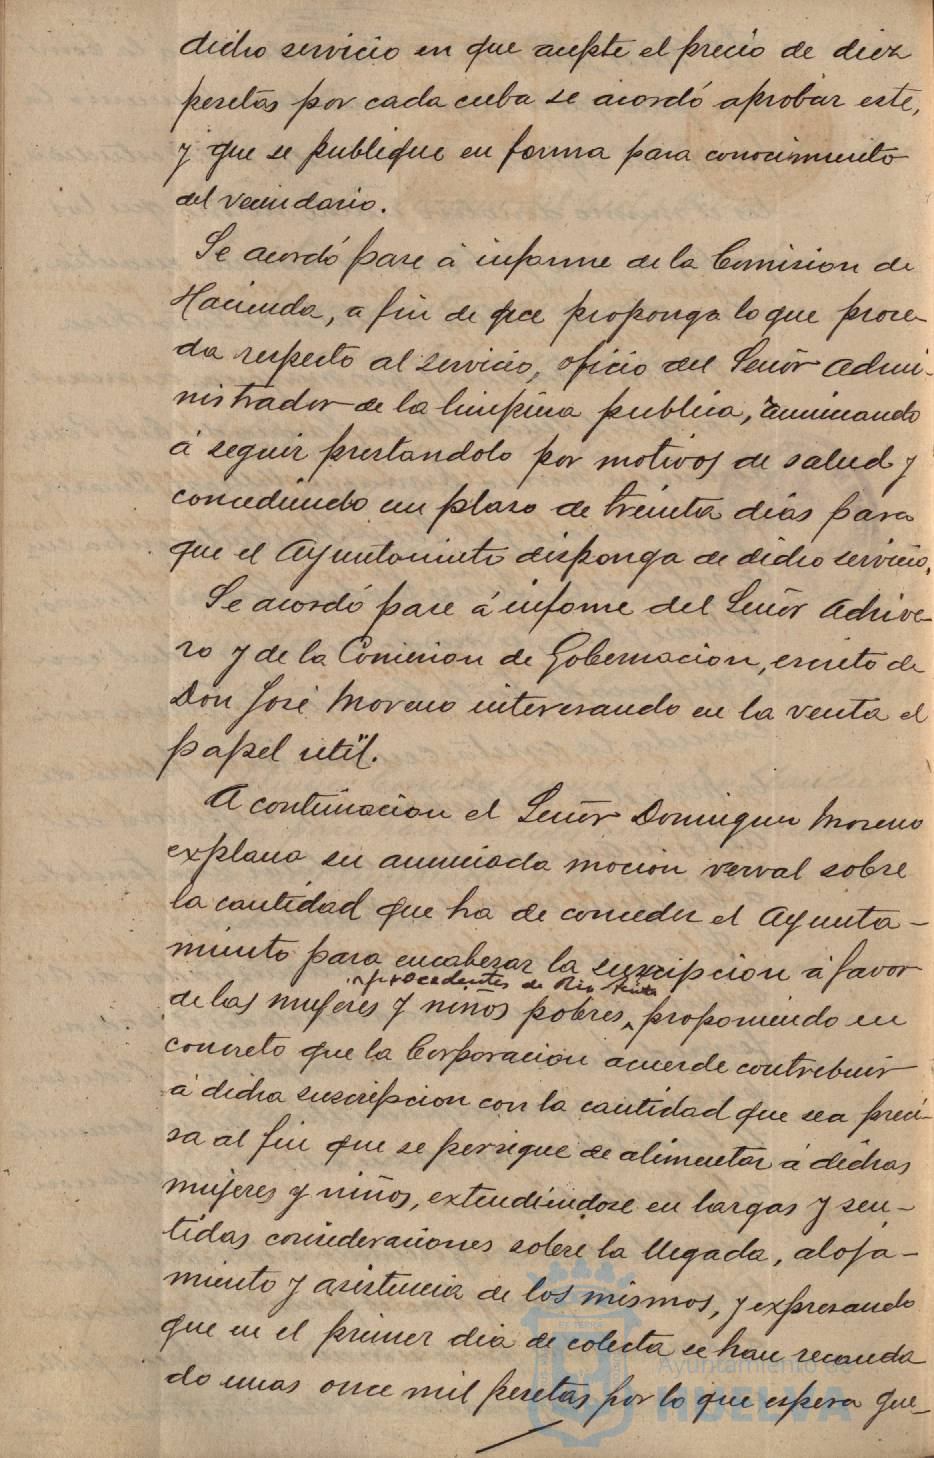 dicho servicio en que acepte el precio de diez
pesetas por cada cuba se acordó aprobar este,
y que se publique en forma para conocimiento
del vecindario.
Se acordó pase á informe de la Comision de
Hacienda, a fin de que proponga lo que proce-
da respecto al servicio, oficio del Señor Admi-
nistrador de la limpieza publica, renunciando
á seguir prestandolo por motivos de salud y
concediendo un plazo de treinta dias para
que el Ayuntamiento disponga de dicho servicio.
Se acordó pase á informe del Señor Archive-
ro y de la Comision de Gobernacion, escrito de
Don José Moreno interesando en la venta el
papel util.
A continuacion el Señor Dominguez Moreno
explana su anunciada mocion verval sobre
la cantidad que ha de conceder el Ayunta-
miento para encabezar la suscripcion á favor
procedentes de Rio-tinto
de las mujeres y niños pobres, proponiendo en
concreto que la Corporacion acuerde contribuir
á dicha suscripcion con la cantidad que sea preci-
sa al fin que se persigue de alimentar á dichas
mujeres y niños, extendiendose en largas y sen-
tidas consideraciones sobre la llegada, aloja-
miento y asistencia de los mismos, y expresando
que en el primer dia de colecta se han recauda
do unas once mil pesetas por lo que espera que-
Ayuntamiento de
HUELVA